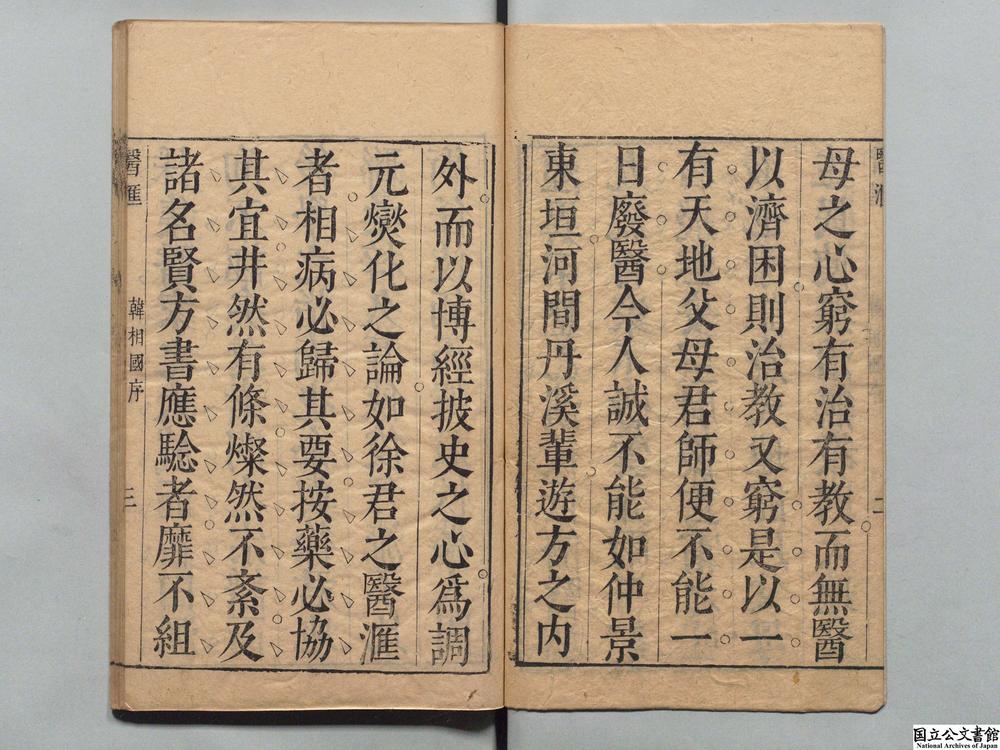 醫滙
二
母之心窮有治有教而無醫
以濟困則治教又窮是以一
有天地父母君師便不能一
日廢醫今人誠不能如仲景
東垣河間丹溪輩遊方之内
外而以博經披史之心爲調
元爕化之論如徐君之醫滙
者相病必歸其要按藥必協
其宜井然有條燦然不紊及
諸名賢方書應騐者靡不組
醫滙
韓相國序
三
国立公文書館
National Archives of Japan